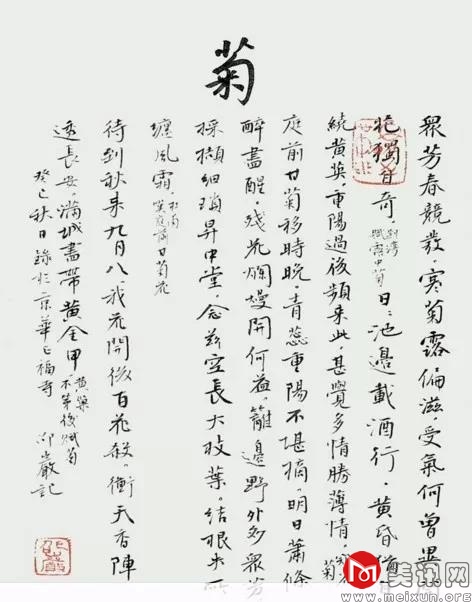 菊
眾芳春競發,寒菊露偏滋,受氣何曾異
花獨自奇。劉灣賦露中菊 日日池邊載酒行,黃昏猶
繞黃英。重陽過後頻來此,甚覺多情勝薄情 菊
庭前甘菊移時晚,青蕊重陽不堪摘。明日蕭條
醉盡醒,殘花爛熳開何益。籬邊野外多眾芳
採擷細瑣昇中堂,念茲空長大枝葉。結根失所
纏風霜 杜甫歎庭前甘菊花
待到秋來九月八,我花開後百花殺。衝天香陣
透長安,滿城盡帶黃金甲 黃巢不第後賦菊
癸巳秋日錄於京華 福寺 巖記
美讯网
www.meixun.org